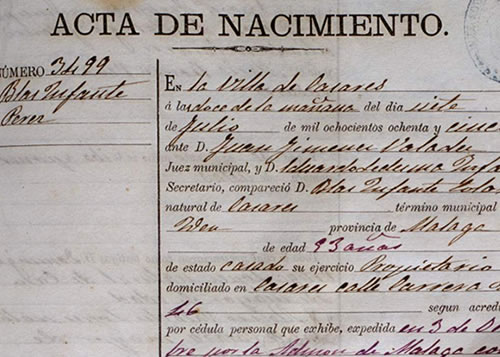 ACTA DE NACIMIENTO.
NÚMERO 3499
Blas Infante
Perez
EN la Villa de Casares
á las doce de la mañana del dia siete
de Julio de mil ochocientos ochenta y cinc
ante D. Juan Jimenez
Juez municipal, y D. Eduardo Ledesma Infa
Secretario, compareció D. Blas Infante
natural de Casares término municipal
Idem provincia de Malaga
de edad 33 años
de estado casado su ejercicio Propietario
domiciliado en Casares calle Carrera
46 segun acred
por cédula personal que exhibe, expedida en 3 de Oc
bre por la Admon de Malaga